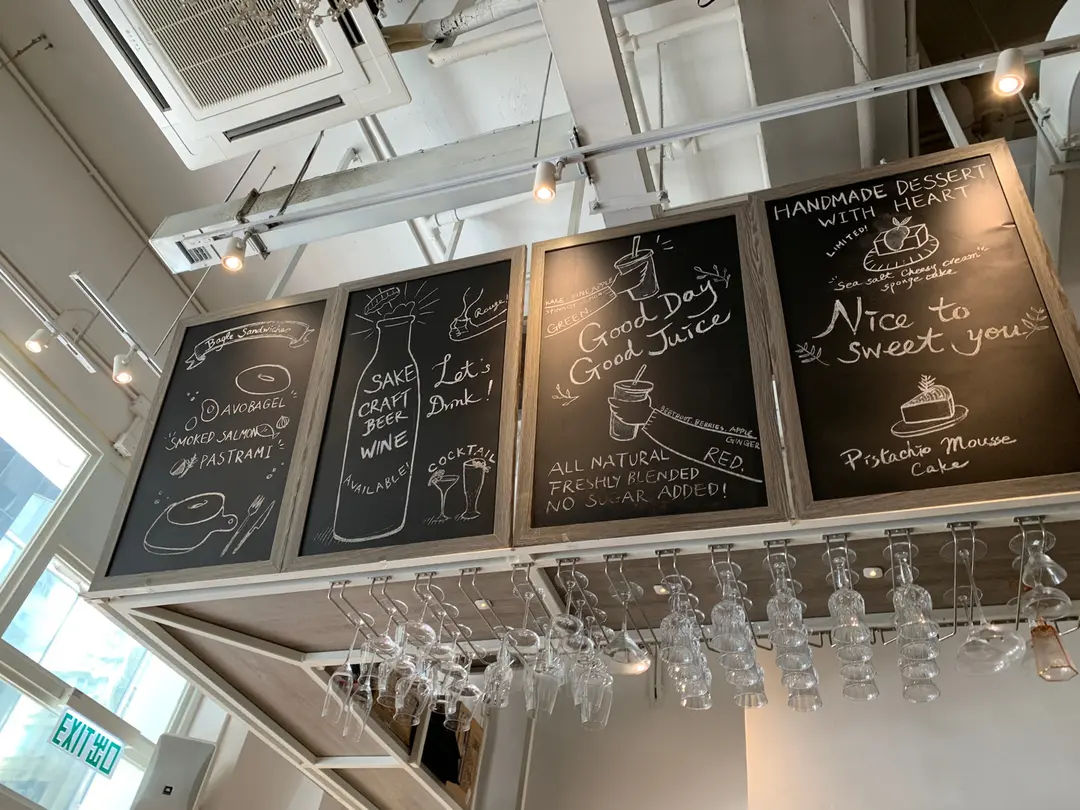 Bagle Sandwiches
AVOBAGEL
SMOKED SALMON
PASTRAMI
Let's
Drink!
SAKE
CRAFT
BEER
WINE
AVAILABLE!
COCKTAIL
KALE PINEAPPLE
GREEN.
Good Day
Good Juice
BEETROOT, BERRIES, APPLE
GINGER
RED.
ALL NATURAL
FRESHLY BLENDED
NO SUGAR ADDED!
HANDMADE DESSERT
WITH HEART
LIMITED!
Sea salt cheesy cream
sponge cake
Nice to
sweet you
Pistachio Mousse
Cake
EXIT出口